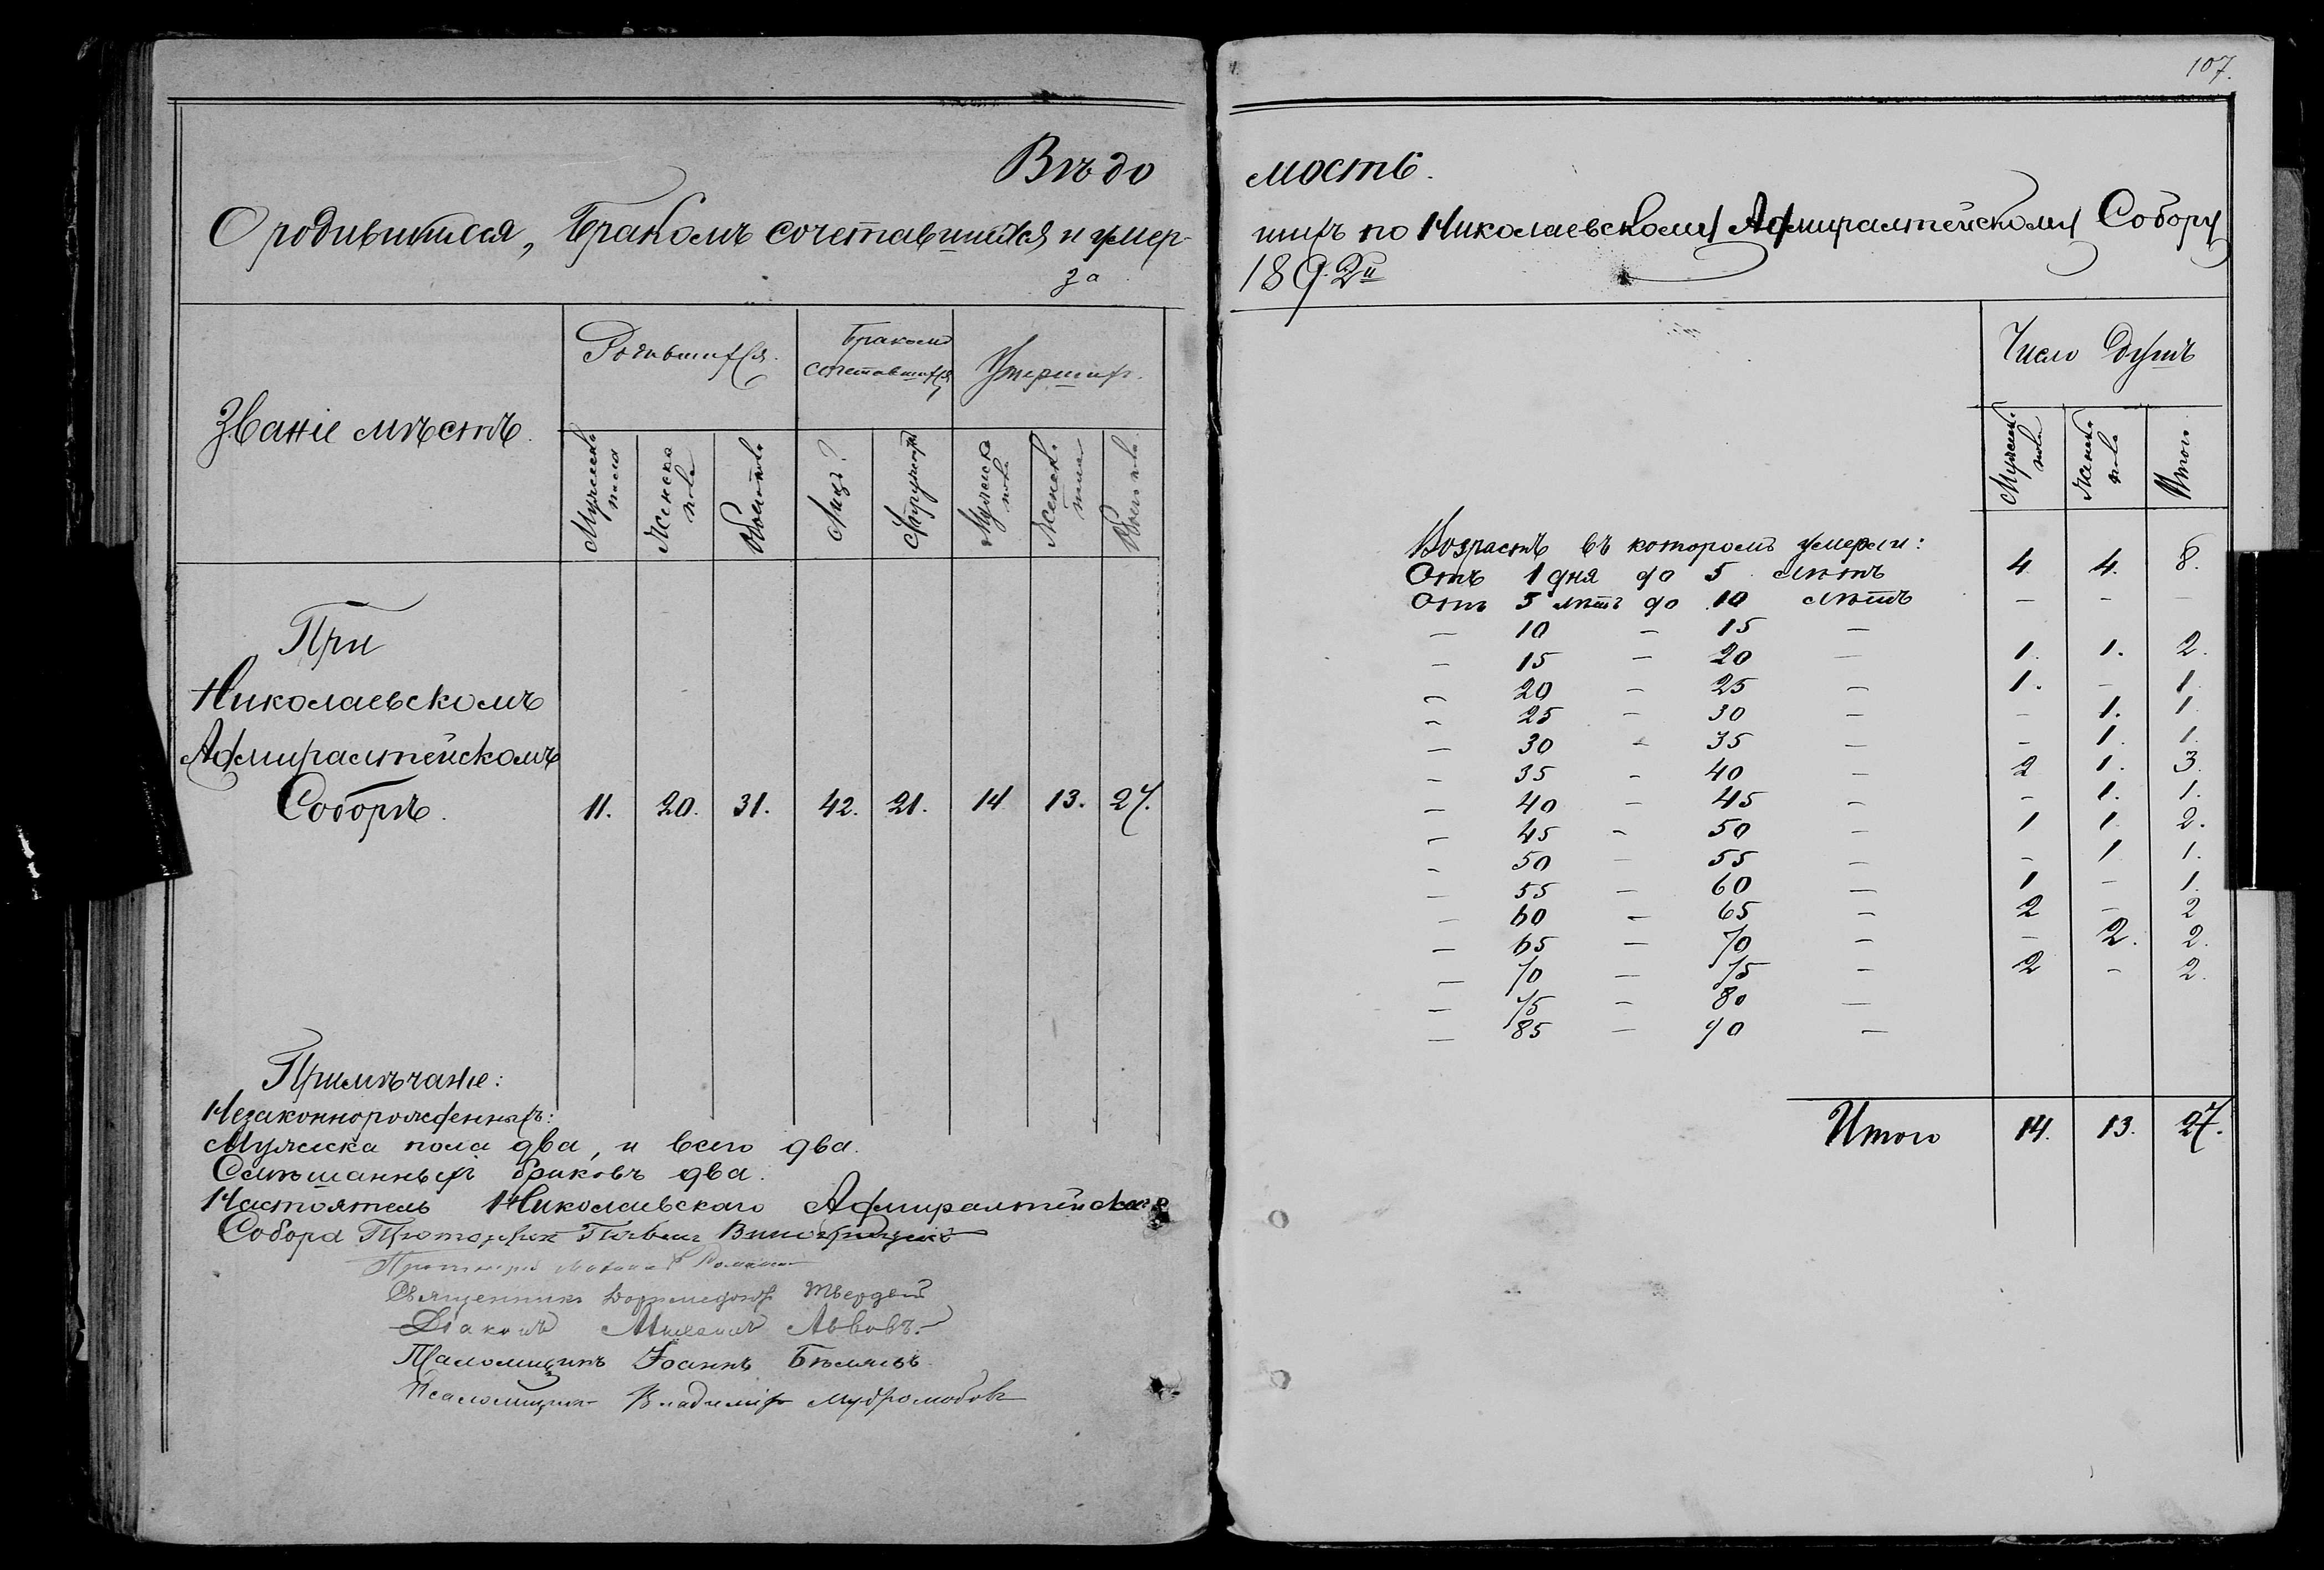 107.
Вѣдо
мость.
О родившихся, бракомъ сочетавшихся и умер-
шихъ по Николаевскому Адмиралтейскому Собору
за
1892й
Званіе мѣстъ.
Родившихся.
Бракомъ
сочетавшихся
Умершихъ.
Мужеска
пола
Женска
пола
Обоего пола
Лицъ
Супружествъ
Мужеска
пола
Женска
пола
Обоего пола
При
Николаевскомъ
Адмиралтейскомъ
Соборѣ. 11. 20. 31. 42. 21. 14 13. 27.
Примѣчаніе:
Незаконнорожденныхъ:
Мужеска пола два, и всего два.
Смѣшанныхъ браковъ два.
Настоятель Николаевскаго Адмиралтейскаго
Собора Протоіерей
Протоіерей
Священникъ Твердый
Діаконъ Михаилъ Львовъ.
Псаломщикъ Іоаннъ
Псаломщикъ Владиміръ Мудролюбовъ
Число душъ
Мужеска
пола
Женска
пола
Итого
Возрастъ въ которомъ умерли:
Отъ 1 дня до 5 лѣтъ 4 4. 8.
Отъ 5 лѣтъ до 10 лѣтъ — — —
— 10 — 15 —
— 15 — 20 — 1. 1. 2.
— 20 — 25 — 1. — 1
— 25 — 30 — — 1. 1
— 30 — 35 — — 1. 1.
— 35 — 40 — 2 1. 3.
— 40 — 45 — — 1. 1.
— 45 — 50 — 1 1 2.
— 50 — 55 — — 1 1.
— 55 — 60 — 1 — 1.
— 60 — 65 — 2 — 2
— 65 — 70 — — 2. 2.
— 70 — 75 — 2 — 2.
— 75 — 80 —
— 85 — 90 —
Итого 14. 13. 27.